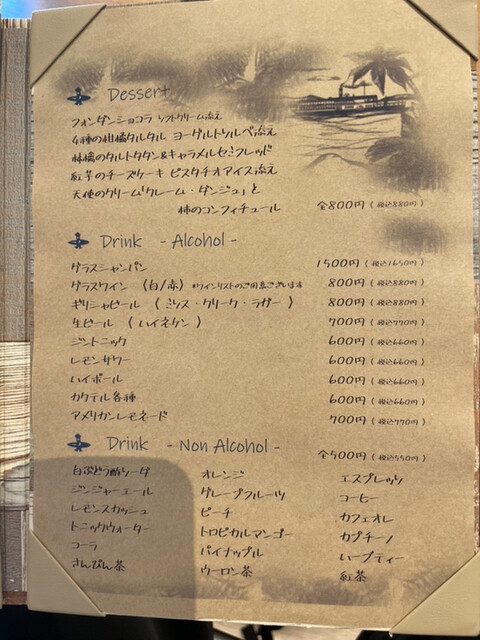 Dessert
フォンダンショコラ ソフトクリーム添え
4種の柑橘タルタル ヨーグルトソルベ添え
林檎のタルトタタン&キャラメルセミフレッド
紅芋のチーズケーキ ピスタチオアイス添え
天使のクリーム「クレーム・ダンジュ」と
柿のコンフィチュール 全800円(税込880円)
Drink - Alcohol -
グラスシャンパン 1500円(税込1650円)
グラスワイン (白/赤) *ワインリストのご用意ございます 800円(税込880円)
ギリシャビール (ミソス・クリーク・ラガー) 800円(税込880円)
生ビール (ハイネケン) 700円(税込770円)
ジントニック 600円(税込660円)
レモンサワー 600円(税込660円)
ハイボール 600円(税込660円)
カクテル各種 600円(税込660円)
アメリカンレモネード 700円(税込770円)
Drink - Non Alcohol - 全500円(税込550円)
白ぶどう酢ソーダ オレンジ エスプレッソ
ジンジャーエール グレープフルーツ コーヒー
レモンスカッシュ ピーチ カフェオレ
トニックウォーター トロピカルマンゴー カプチーノ
コーラ パイナップル ハーブティー
さんぴん茶 ウーロン茶 紅茶